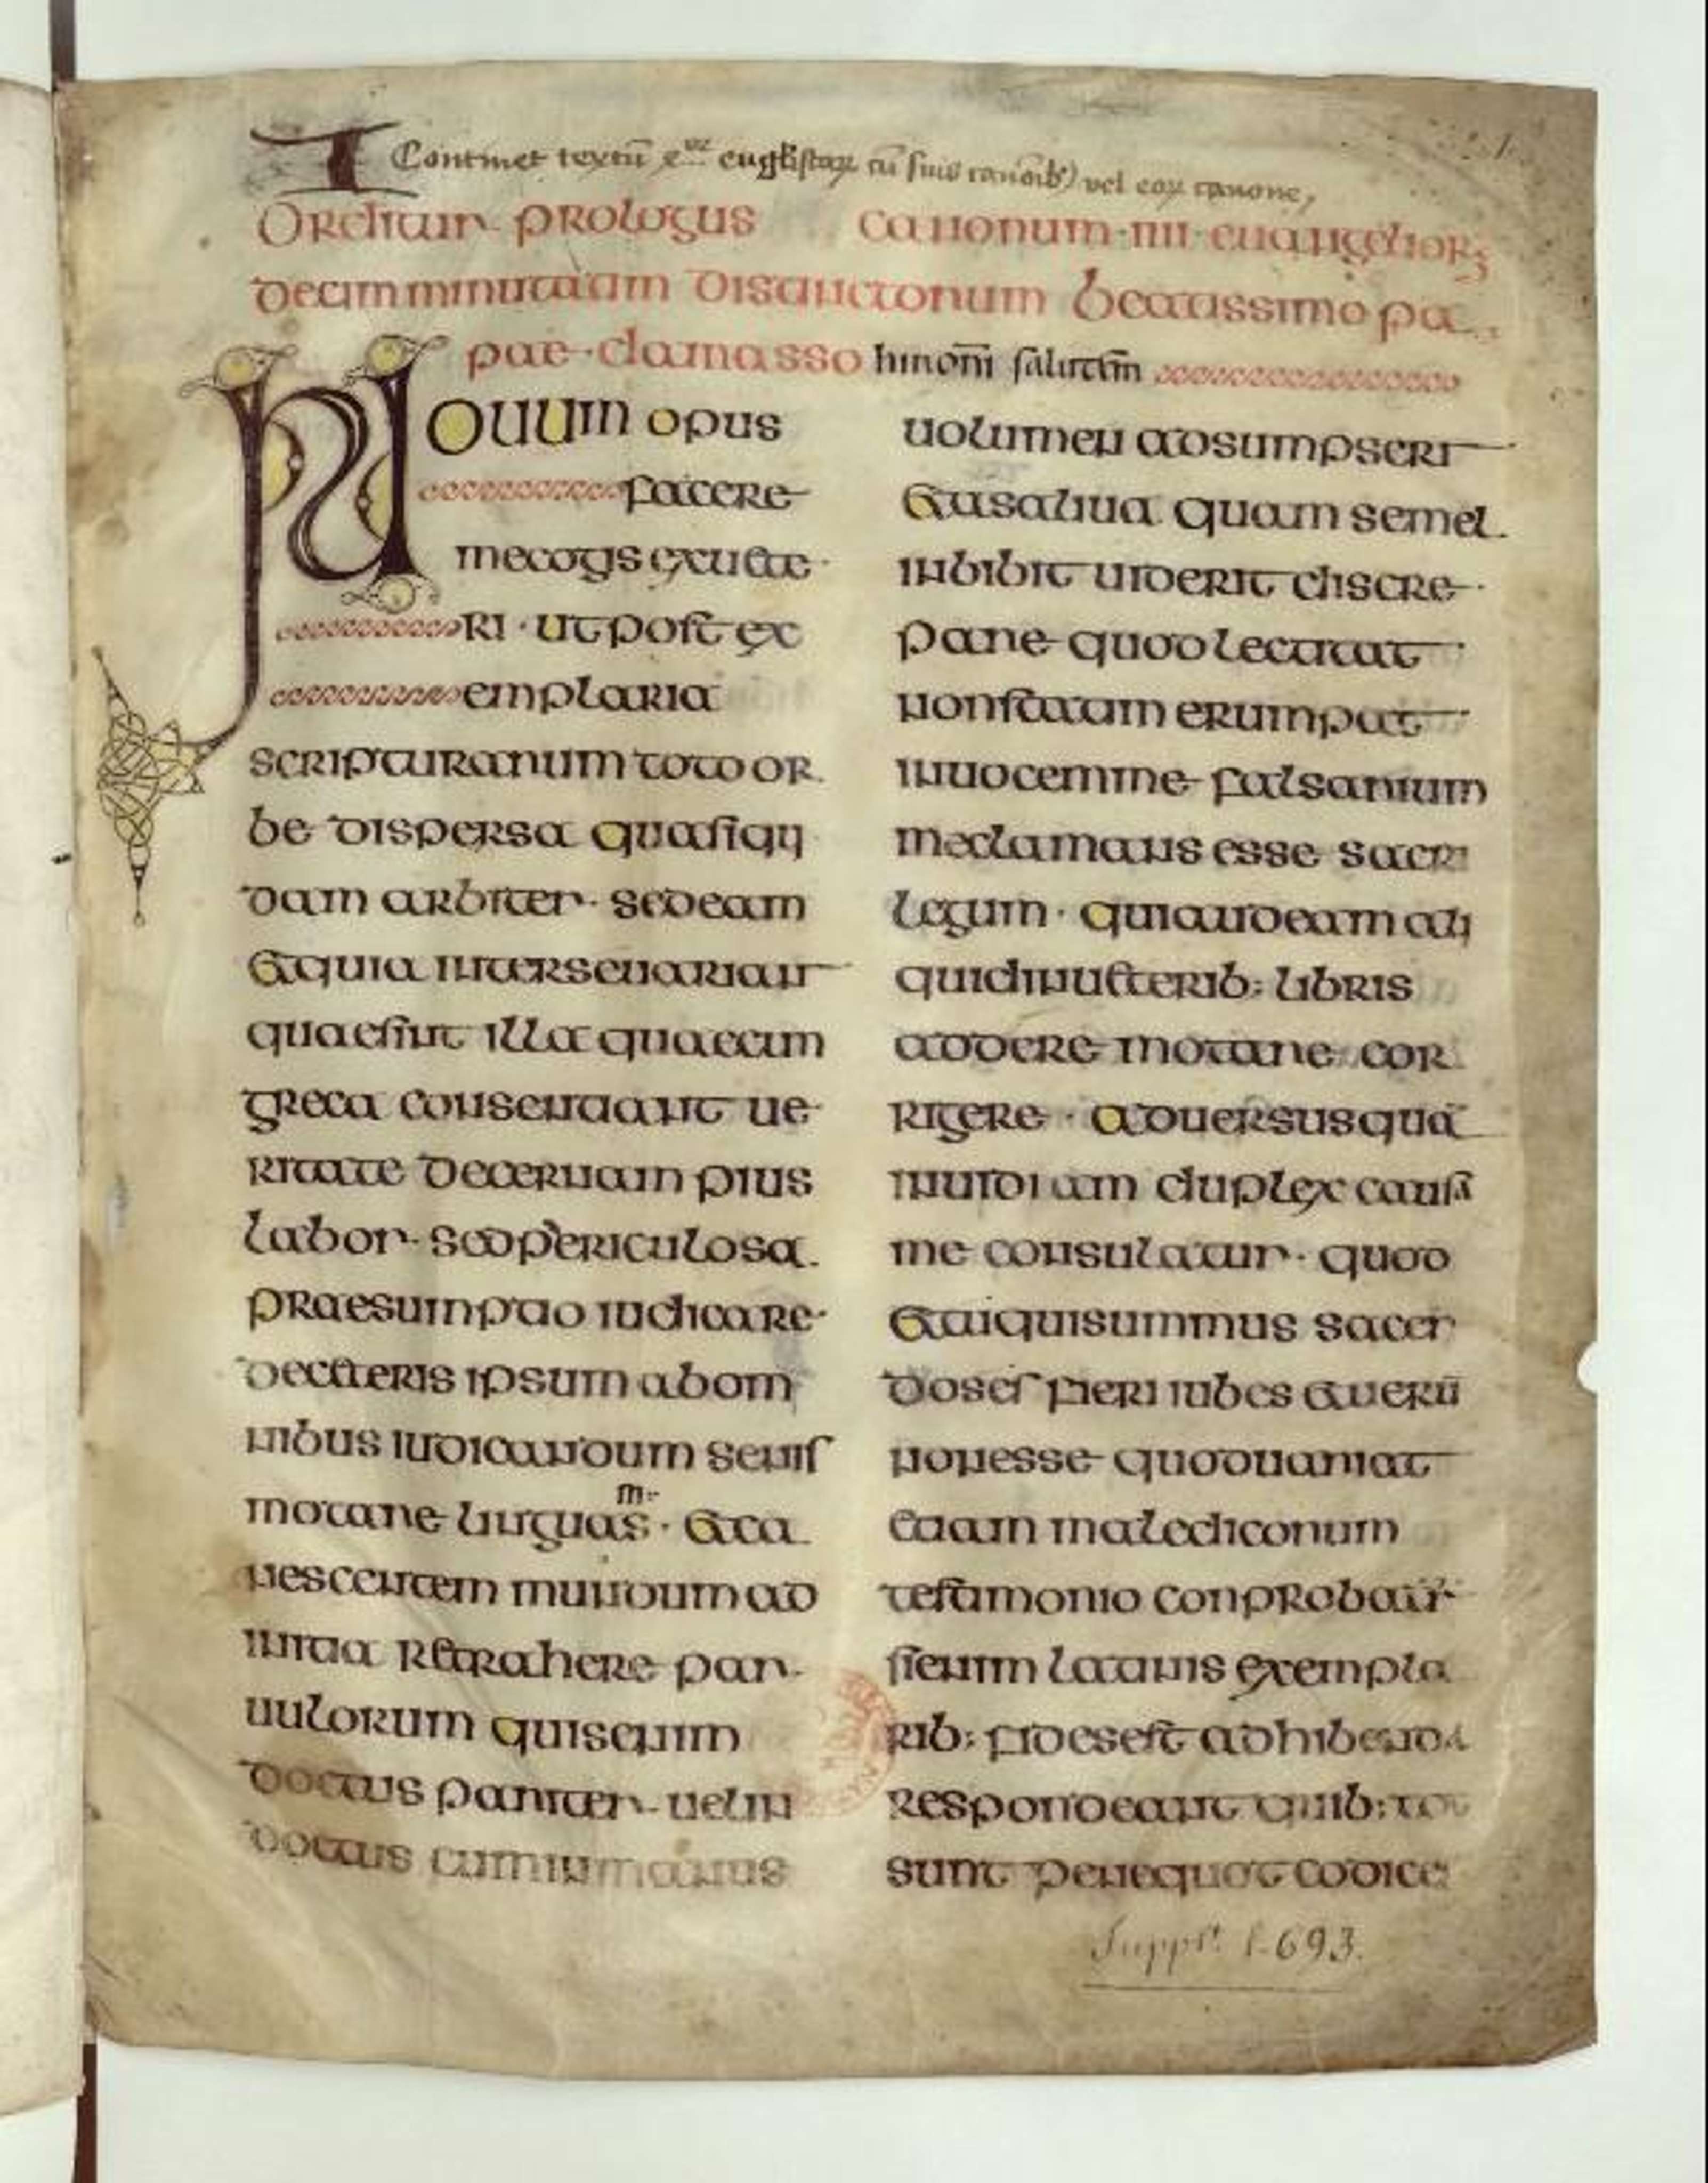 I Continet textū q̄ uꝫ euglistaꝝ cū suis canōib) vel eoꝝ canone,
Orditur prologus canonum · IIII · euangeliorꝫ
decimminutatim distinctonum beatissimo pa
pae · damasso hironī salutēm
Nouum opus
facere
mecogis exuete
ri · ut post ex
emplaria
scripturarum toto or
be dispersa quasi qui
dam arbiter · sedeam
& quia inter se uariant
quae sint illa quae cum
greca consentiant ue
ritate decernam pius
labor · sed periculosa
praesumptio iudicare ·
de ceteris ipsum ab om
nibus iudicandum senis
motare linguas m · & ca
nescentem mundum ad
initia retrahere par
uulorum quis enim
doctus pariter uel in
doctus cum in manus
uolumen adsumpseri
& a saliua quam semel
inbibit uiderit discre
pare quod lectitat
non statim erumpat
in uocem me falsarium
me clamans esse sacri
legum · qui audeam ali
quid in ueterib: libris
addere motare cor
rigere · aduersus qua
inuidiam duplex causa
me consulatur · quod
& tu qui summus sacer
dos es fieri iubes & uerū
non esse quod uariat
etiam maledicorum
testimonio conprobatur
si enim latinis exempla
rib: fides est adhibenda
respondeant quib: tot
sunt pene quot codice
Supplt l. 693.